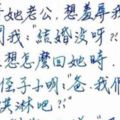 她老公,想羞辱我
問我:"結婚沒呀?"
想怎麼回她時,
侄子小明:"爸,我們
淇淋吧?"